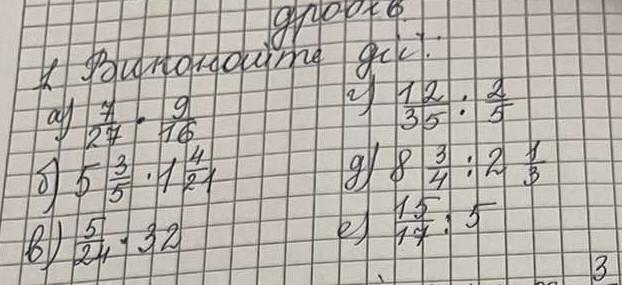 дробів.
1. Виконайте дії:
а) 7/27 · 9/16
б) 5 3/5 · 1 4/21
в) 5/24 · 32
г) 12/35 : 2/5
д) 8 3/4 : 2 1/3
е) 15/17 : 5
3